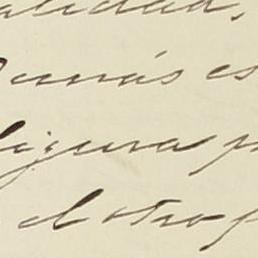 alidad,
Demás es
figura p
el otro p